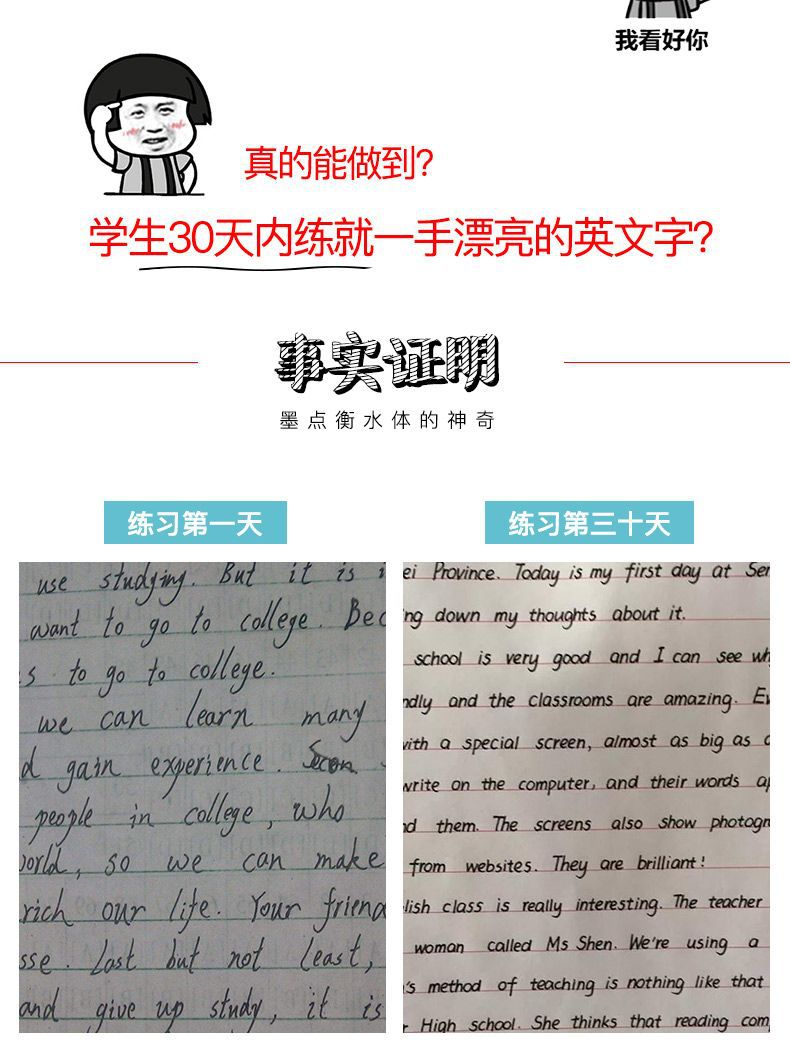 我看好你
真的能做到?
学生30天内练就一手漂亮的英文字?
事实证明
墨点衡水体的神奇
练习第一天
use studying. But it is
want to go to college. Bec
s to go to college.
we can learn many
d gain experience.
people in college, who
world, so we can make
rich our life. Your friend
sse. Last but not least,
and give up study, it is
练习第三十天
ei Province. Today is my first day at Sen
ng down my thoughts about it.
school is very good and I can see wh
ndly and the classrooms are amazing. Ev
with a special screen, almost as big as a
write on the computer, and their words ap
nd them. The screens also show photogr
from websites. They are brilliant!
lish class is really interesting. The teacher
woman called Ms Shen. We're using a
's method of teaching is nothing like that
r High school. She thinks that reading com